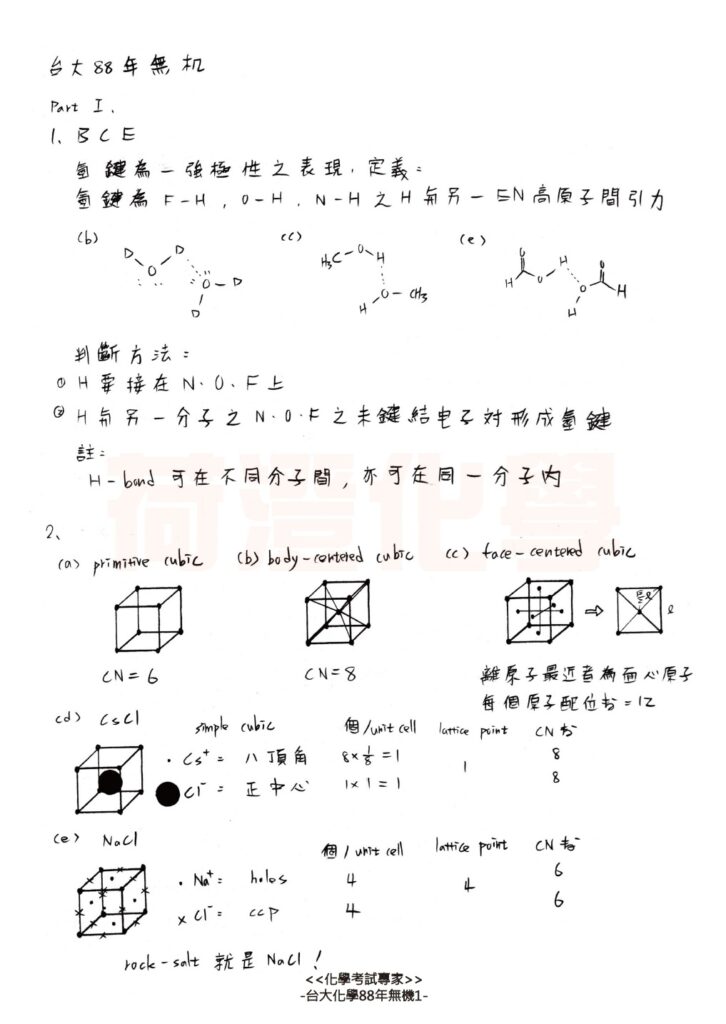 台大88年無机
Part I、
1、B C E
氫鍵為一強極性之表現，定義：
氫鍵為 F-H，O-H，N-H 之 H 與另一 EN 高原子間引力
(b) (c) (e)
D D O O D D
H3C-O-H O-CH3 H
O H O H O O H H
判斷方法：
① H 要接在 N、O、F 上
② H 與另一分子之 N、O、F 之未鍵結电子对形成氫鍵
註：
H-bond 可在不同分子間，亦可在同一分子內
荷澧化學
2、
(a) primitive cubic (b) body-centered cubic (c) face-centered cubic
CN=6 CN=8
離原子最近者為面心原子
每個原子配位數=12
(d) CsCl simple cubic 個/unit cell lattice point CN數
• Cs⁺ = 八頂角 8×1/8=1 1 8
Cl⁻ = 正中心 1×1=1 8
(e) NaCl 個/unit cell lattice point CN數
• Na⁺ = holes 4 4 6
× Cl⁻ = ccp 4 6
rock-salt 就是 NaCl！
<<化學考試專家>>
-台大化學88年無機1-